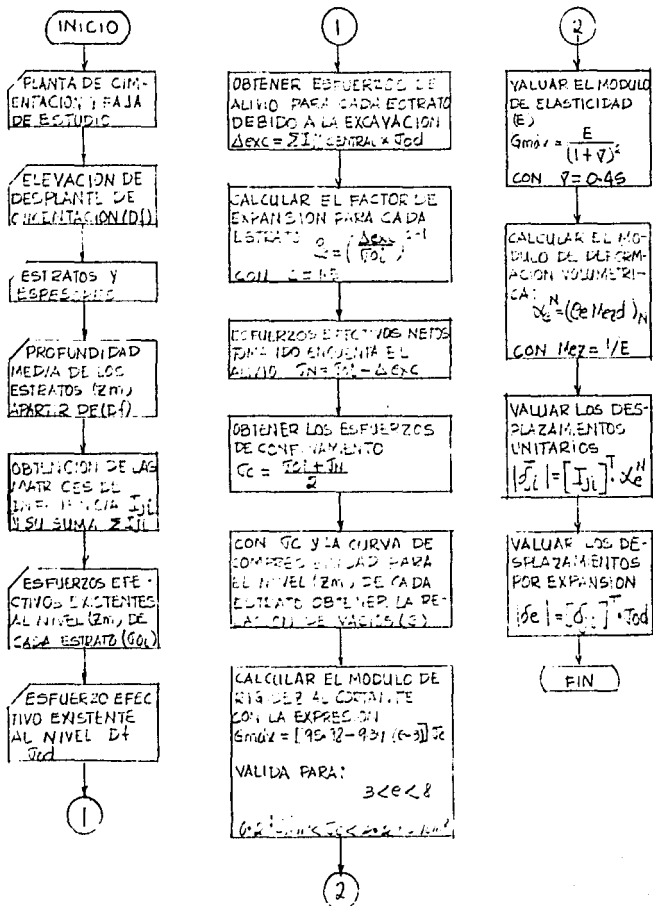 INICIO
PLANTA DE CIM-
ENTACION Y FAJA
DE ESTUDIO
ELEVACION DE
DESPLANTE DE
CIMENTACION (Df)
ESTRATOS Y
ESPESORES
PROFUNDIDAD
MEDIA DE LOS
ESTRATOS (Zm)
APARTIR DE (Df)
OBTENCION DE LAS
MATRICES DE
INFLUENCIA Iji
Y SU SUMA ΣIji
ESFUERZOS EFE-
CTIVOS EXISTENTES
AL NIVEL (Zm) DE
CADA ESTRATO (σoi)
ESFUERZO EFEC
TIVO EXISTENTE
AL NIVEL Df
σod
1
1
OBTENER ESFUERZOS DE
ALIVIO PARA CADA ESTRATO
DEBIDO A LA EXCAVACION
Δexc = ΣIji CENTRAL x σod
CALCULAR EL FACTOR DE
EXPANSION PARA CADA
ESTRATO = (Δexc / σoi)
CON
ESFUERZOS EFECTIVOS NETOS
TOMANDO ENCUENTA EL
ALIVIO σN = σoi - Δexc
OBTENER LOS ESFUERZOS
DE CONFINAMIENTO
σc = σoi + σN / 2
CON σc Y LA CURVA DE
COMPRESIBILIDAD PARA
EL NIVEL (Zm) DE CADA
ESTRATO OBTENER LA RE-
LACION DE VACIOS (e)
CALCULAR EL MODULO DE
RIGIDEZ AL CORTANTE
CON LA EXPRESION
Gmáx = [95.72 - 9.31 (e-3)] σc
VALIDA PARA:
3<e<8
2
2
VALUAR EL MODULO
DE ELASTICIDAD
(E)
Gmáx = E / (1+ν)²
CON ν = 0.45
CALCULAR EL MO-
DULO DE DEFORM-
ACION VOLUMETRI-
CA:
αe^N = (ρe Mez d)N
CON Mez = 1/E
VALUAR LOS DES-
PLAZAMIENTOS
UNITARIOS
|δji| = [Iji]^T · αe^N
VALUAR LOS DE-
SPLAZAMIENTOS
POR EXPANSION
|δe| = [δji]^T · σod
FIN